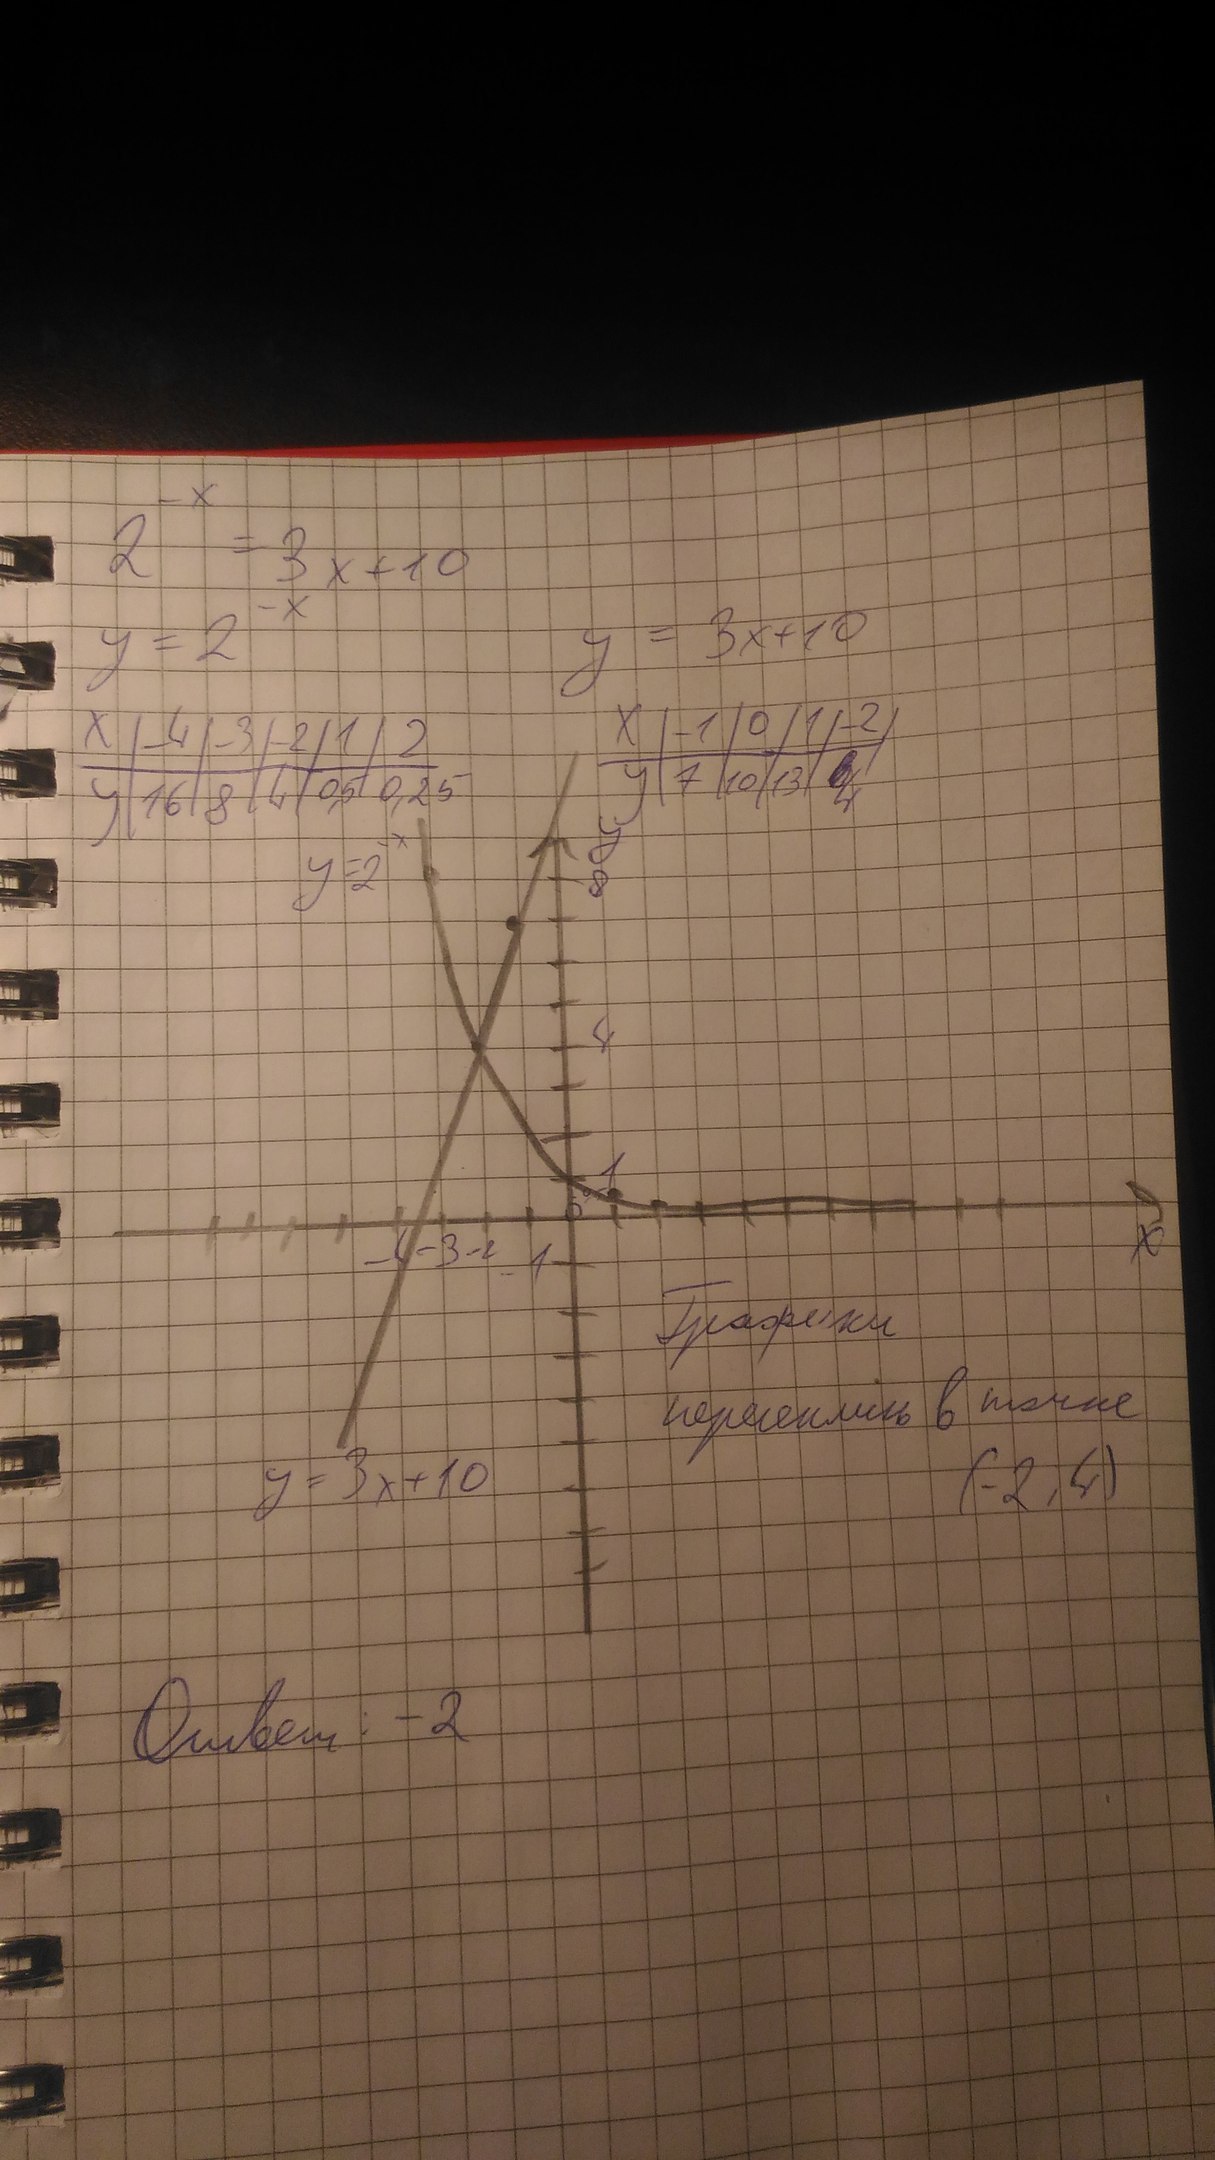 2^-x = 3x+10
y = 2^-x y = 3x+10
x | -4 | -3 | -2 | 1 | 2 x | -1 | 0 | 1 | -2 |
y | 16 | 8 | 4 | 0,5 | 0,25 y | 7 | 10 | 13 | 4
y=2^-x y
8
4
1
0
-4 -3 -2 -1 x
Графики
в точке
y = 3x+10 (-2, 4)
Ответ: -2